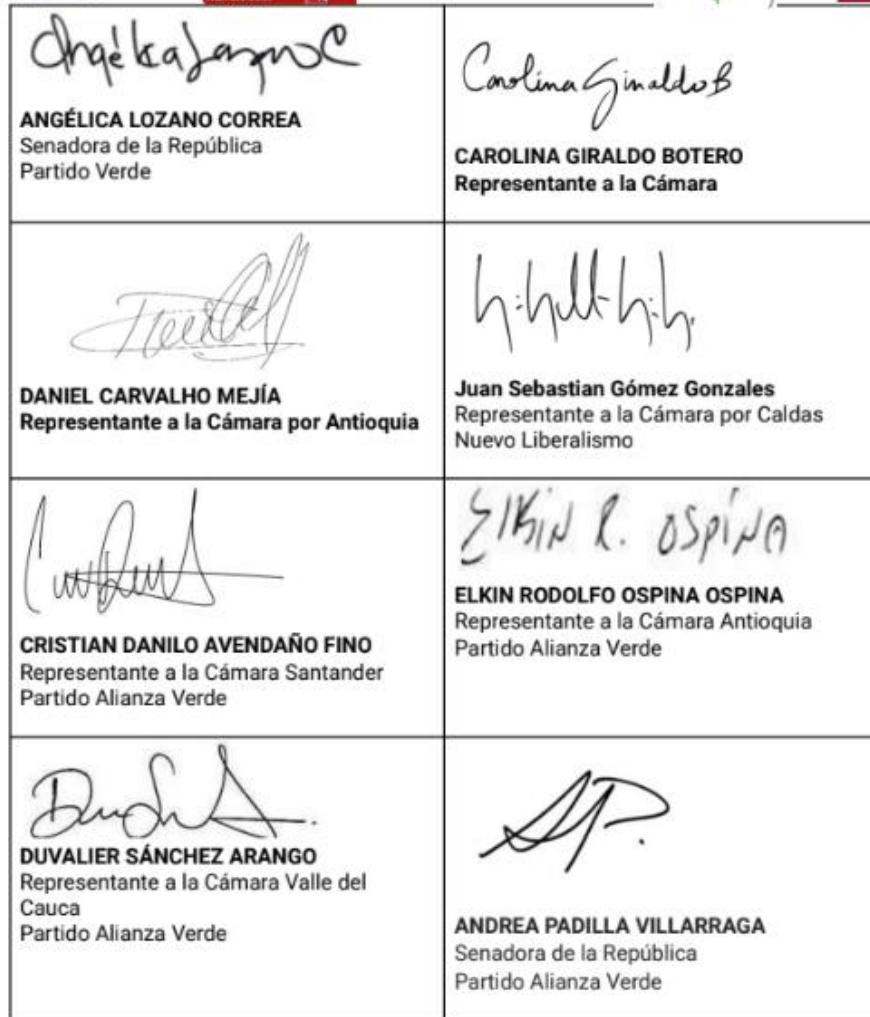 Angélica Lozano C
ANGÉLICA LOZANO CORREA
Senadora de la República
Partido Verde
Carolina Giraldo B
CAROLINA GIRALDO BOTERO
Representante a la Cámara
DANIEL CARVALHO MEJÍA
Representante a la Cámara por Antioquia
Juan Sebastian Gómez Gonzales
Representante a la Cámara por Caldas
Nuevo Liberalismo
CRISTIAN DANILO AVENDAÑO FINO
Representante a la Cámara Santander
Partido Alianza Verde
Elkin R. OSPINA
ELKIN RODOLFO OSPINA OSPINA
Representante a la Cámara Antioquia
Partido Alianza Verde
DUVALIER SÁNCHEZ ARANGO
Representante a la Cámara Valle del
Cauca
Partido Alianza Verde
ANDREA PADILLA VILLARRAGA
Senadora de la República
Partido Alianza Verde